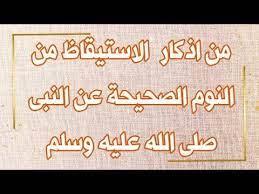 من اذكار الاستيقاظ من
النوم الصحيحة عن النبى
صلى الله عليه وسلم